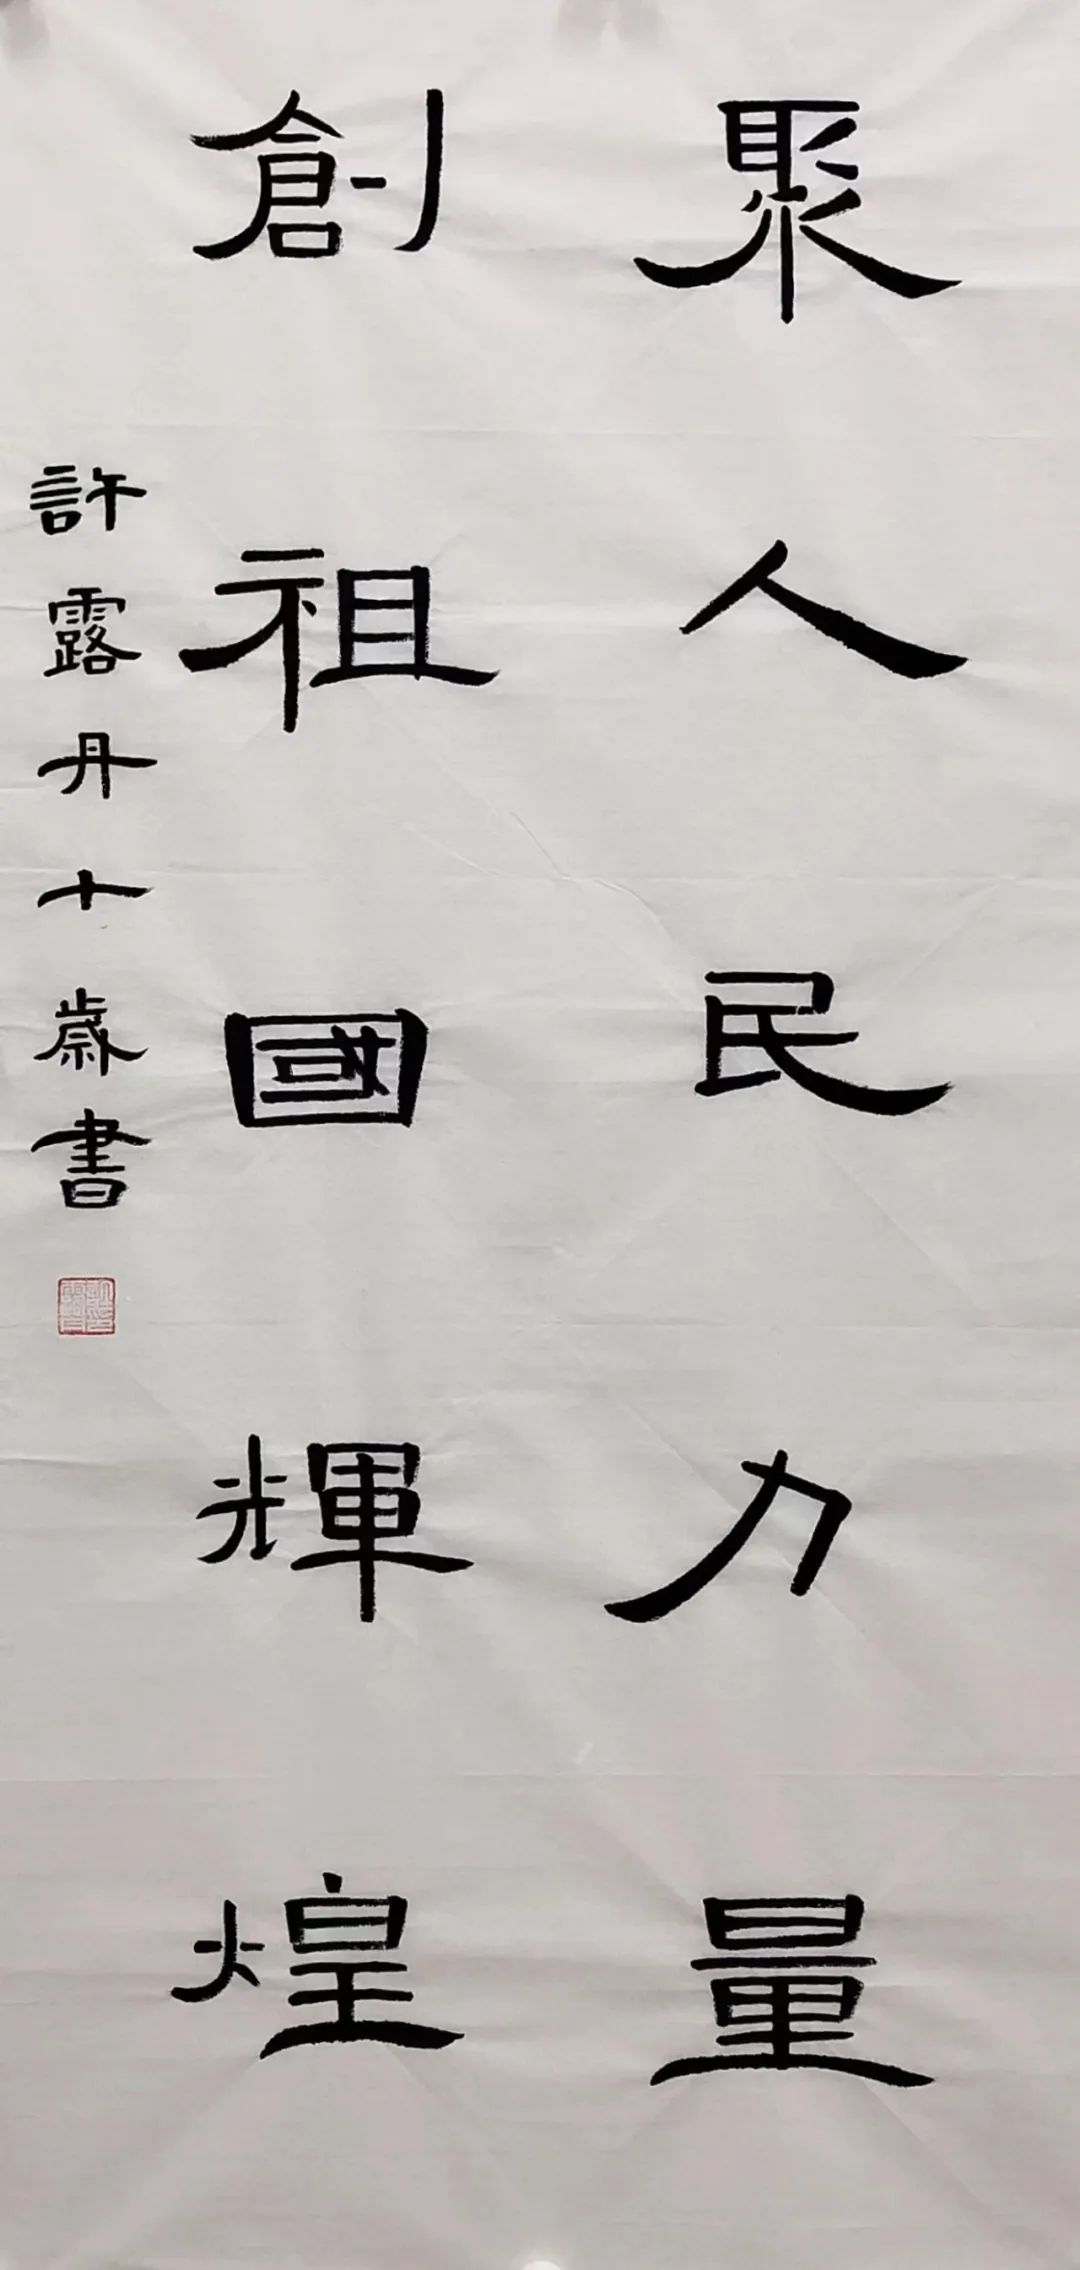 聚人民力量
創祖國輝煌
許露丹十歲書